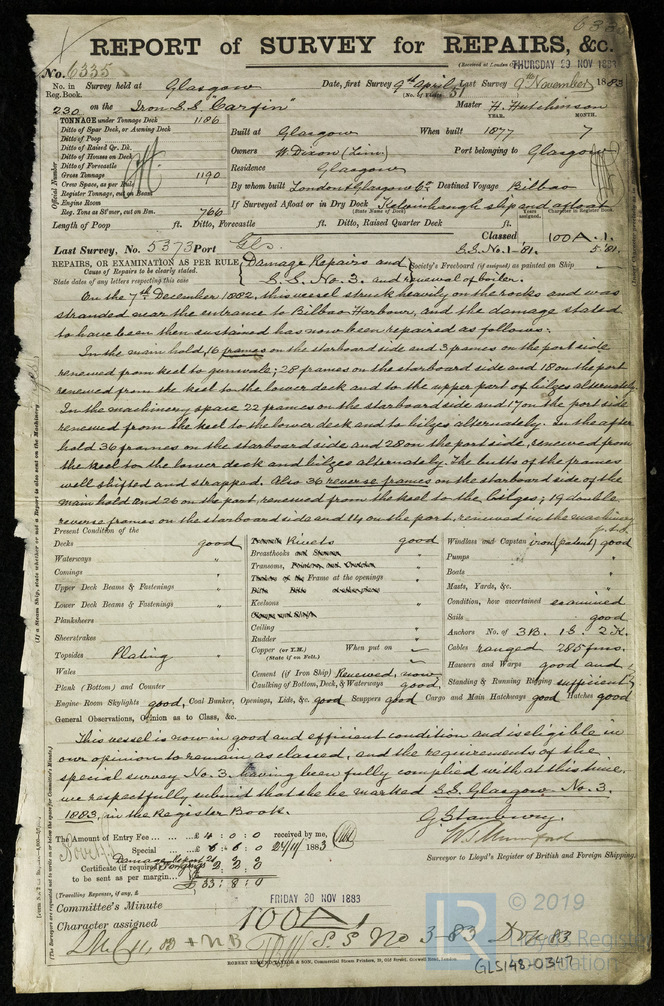 REPORT of SURVEY for REPAIRS, &c.
No. 6335
(Received at London
THURSDAY 29 NOV 1883
No. in Reg. Book. Survey held at Glasgow Date, first Survey 9th April Last Survey 9th November 1883
(No. of Visits 51)
230 on the Iron S.S. "Carfin" Master H. Hutchinson
TONNAGE under Tonnage Deck 1186
Ditto of Spar Deck, or Awning Deck
Ditto of Poop
Ditto of Raised Qr. Dk.
Ditto of Houses on Deck
Ditto of Forecastle
Gross Tonnage 1190
Crew Space, as per Rule
Register Tonnage, cut on Beam
Engine Room
Reg. Tons as St'mer, cut on Bm. 766
Official Number
YEAR. MONTH.
Built at Glasgow When built 1877 7
Owners W. Dixon (Lim) Port belonging to Glasgow
Residence Glasgow
By whom built London & Glasgow Co. Destined Voyage Bilbao
If Surveyed Afloat or in Dry Dock Kelvinhaugh slip and afloat
(State Name of Dock)
Years assigned. Character in Register Book.
Length of Poop ft. Ditto, Forecastle ft. Ditto, Raised Quarter Deck ft.
Classed 100A.1.
Last Survey, No. 5373 Port Gls. S.S. No. 1-81. 5-81.
REPAIRS, OR EXAMINATION AS PER RULE,
Cause of Repairs to be clearly stated.
State dates of any letters respecting this case
Damage Repairs and
S.S. No. 3. and renewal of boiler.
Society's Freeboard (if assigned) as painted on Ship
On the 7th December 1882, this vessel struck heavily on the rocks and was
stranded near the entrance to Bilbao Harbour, and the damage stated
to have been then sustained has now been repaired as follows:-
In the main hold, 16 frames on the starboard side and 3 frames on the port side
renewed from keel to gunwale; 28 frames on the starboard side and 18 on the port
renewed from the keel to the lower deck and to the upper part of bilges alternately.
In the machinery space 22 frames on the starboard side and 17 on the port side
renewed from the keel to the lower deck and to bilges alternately. In the after
hold 36 frames on the starboard side and 28 on the port side, renewed from
the keel to the lower deck and bilges alternately. The butts of the frames
well shifted and strapped. Also 36 reverse frames on the starboard side of the
main hold and 26 on the port, renewed from the keel to the bilges; 19 double
reverse frames on the starboard side and 14 on the port, renewed in the machinery
Present Condition of the
Decks good
Waterways "
Comings "
Upper Deck Beams & Fastenings "
Lower Deck Beams & Fastenings "
Planksheers
Sheerstrakes "
Topsides Plating "
Wales
Plank (Bottom) and Counter
Rivets good
Breasthooks "
Transoms, "
Frame at the openings "
Keelsons "
Ceiling "
Rudder "
Copper (or Y.M.) When put on
(State if on Felt.)
Cement (if Iron Ship) Renewed, now
Caulking of Bottom, Deck, & Waterways good
Windlass and Capstan iron (patent) good
Pumps "
Boats "
Masts, Yards, &c. "
Condition, how ascertained examined
Sails good
Anchors No. of 3 B. 1 S. 2 K.
Cables ranged 285 fms.
Hawsers and Warps good and
Standing & Running Rigging sufficient
Engine Room Skylights good, Coal Bunker, Openings, Lids, &c. good Scuppers good Cargo and Main Hatchways good Hatches good
General Observations, Opinion as to Class, &c.
This vessel is now in good and efficient condition and is eligible in
our opinion to remain as classed, and the requirements of the
special survey No. 3. having been fully complied with at this time,
we respectfully submit that she be marked S.S. Glasgow No. 3.
1883, in the Register Book.
G. Stanbury.
W. S. Mumford
Surveyor to Lloyd's Register of British and Foreign Shipping
The Amount of Entry Fee £ 4 : 0 : 0 received by me,
Special £ 6 : 6 : 0 24/11/1883
Damage Report
Certificate (if required)
to be sent as per margin £ 33 : 8 : 0
(Travelling Expenses, if any, £
Committee's Minute FRIDAY 30 NOV 1883
Character assigned 100A.1.
S S No 3-83
ROBERT EDMUND TAYLOR & SON, Commercial Steam Printers, 19, Old Street, Goswell Road, London.
LR © 2019 Lloyd's Register Foundation
GLS148-0347